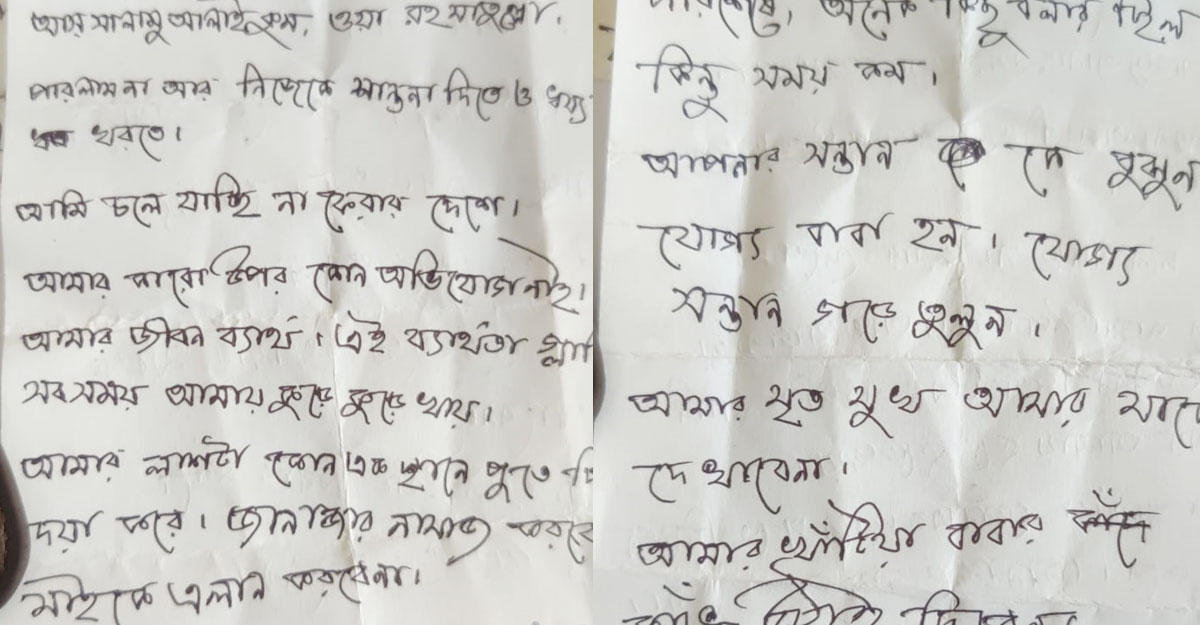 আসসালামু আলাইকুম, ওয়া রহমাতুল্লা।
পারলাম না আর নিজেকে শান্তনা দিতে ও ধয্য
ধরতে।
আমি চলে যাচ্ছি না ফেরার দেশে।
আমার কারো উপর কোন অভিযোগ নাই।
আমার জীবন ব্যার্থ। এই ব্যার্থতা গ্লানি
সব সময় আমায় কুড়ে কুড়ে খায়।
আমার লাশটা কোন এক স্থানে পুতে
দয়া করে। জানাজার নামাজ করবে
মাইকে এলান করবেনা।
পরিশেষে, অনেক কিছু বলার ছিল
কিন্তু সময় কম।
আপনার সন্তান কে বুঝুন
যোগ্য বাবা হন। যোগ্য
সন্তান গড়ে তুলুন।
আমার মৃত মুখ আমার মাকে
দেখাবেনা।
আমার বাবার